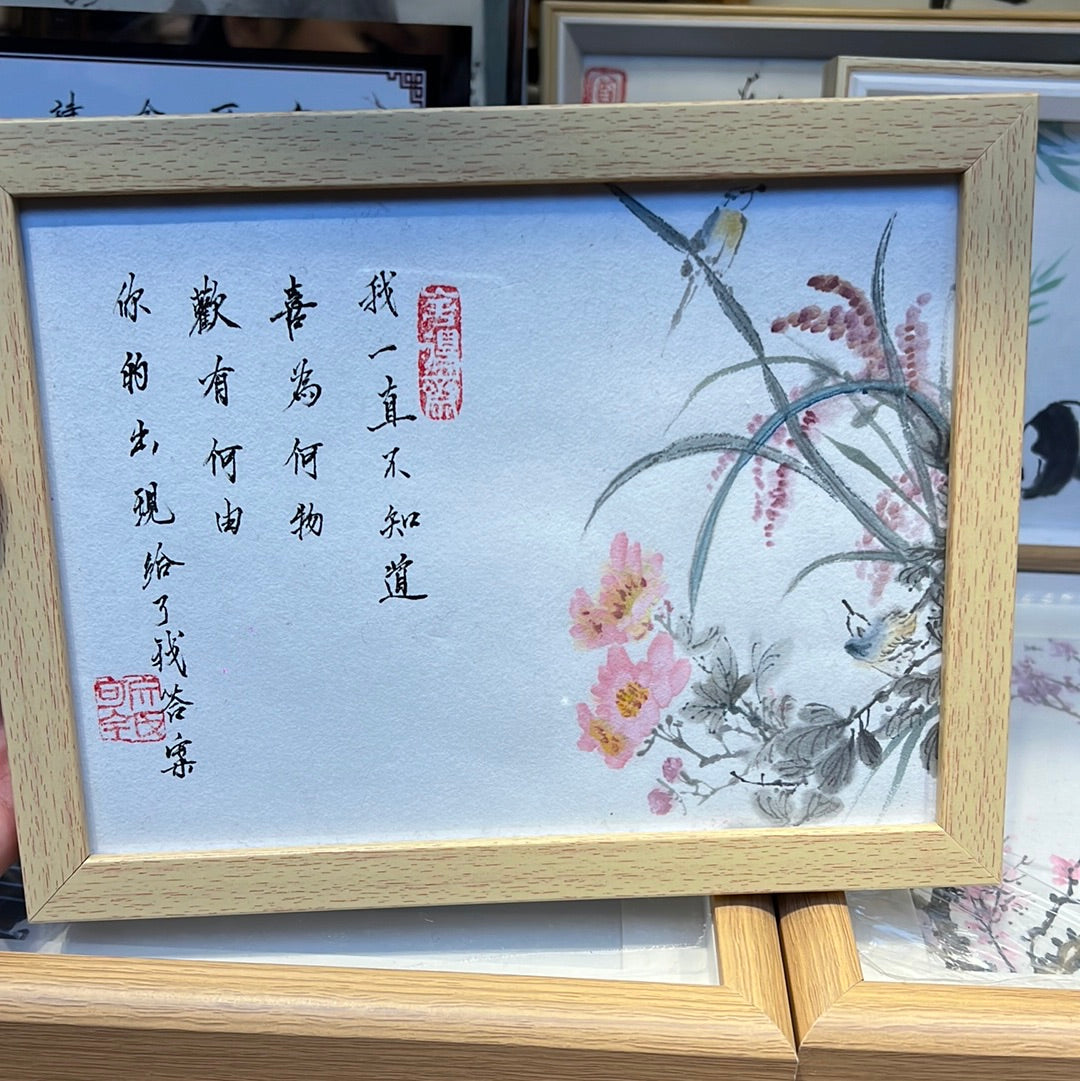 我一直不知道
喜為何物
歡有何由
你的出現給了我答案